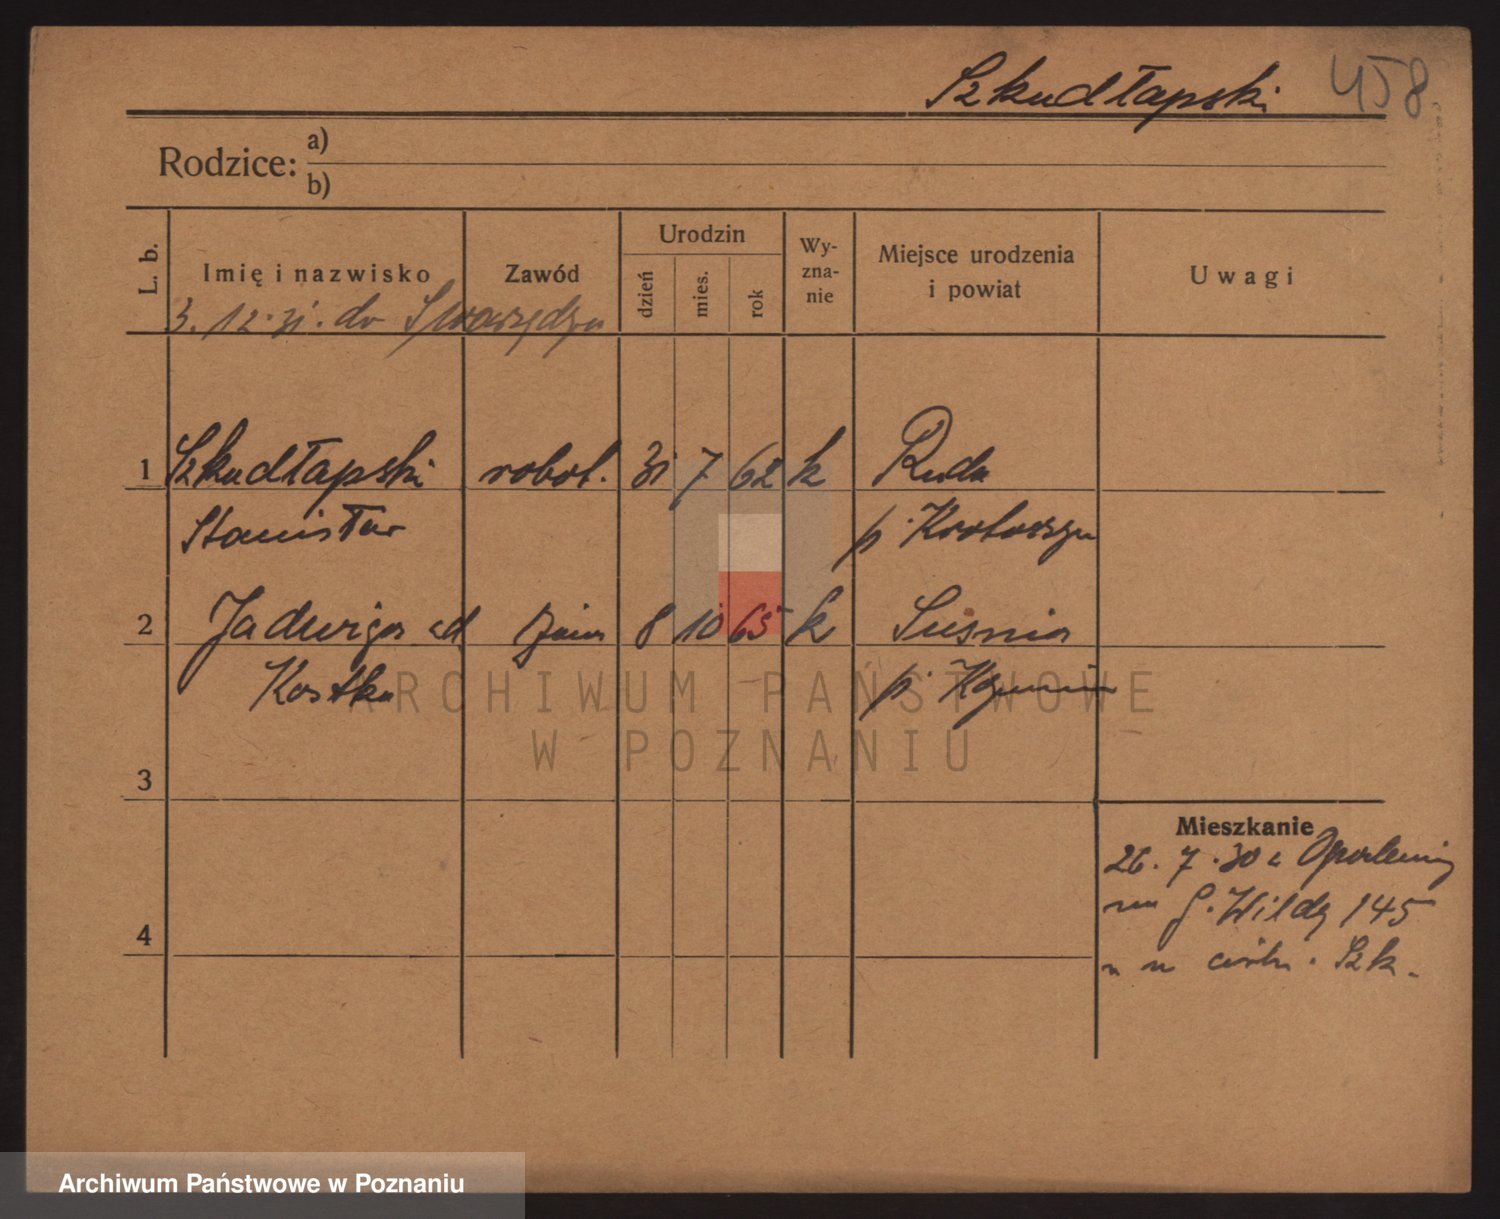 Szkudłapski 458
Rodzice: a)
b)
L. b. Imię i nazwisko Zawód Urodzin dzień mies. rok Wy-zna-nie Miejsce urodzenia i powiat Uwagi
3. 12. 31. do Swarzędza
1 Szkudłapski robot. 31 7 62 k Ruda
Stanisław p. Krotoszyn
2 Jadwiga od żona 8 10 65 k Suśnia
Kostka p.
3
Mieszkanie
26. 7. 30 z
G. Wildy 145
4
Szk.
ARCHIWUM PAŃSTWOWE
W POZNANIU
Archiwum Państwowe w Poznaniu